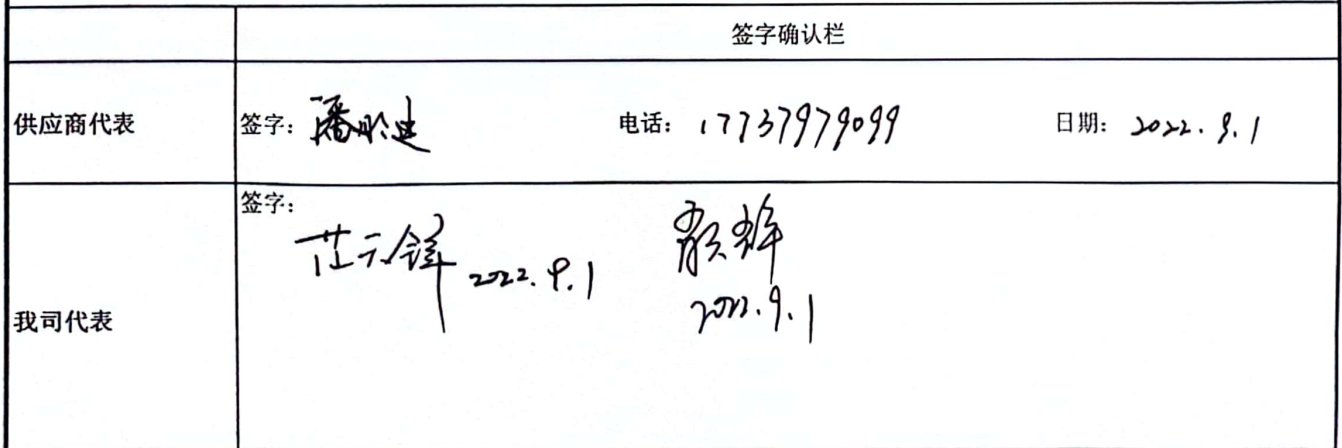 签字确认栏
供应商代表 签字: 潘 电话: 17737979099 日期: 2022.9.1
签字:
范元锋 2022.9.1
2022.9.1
我司代表